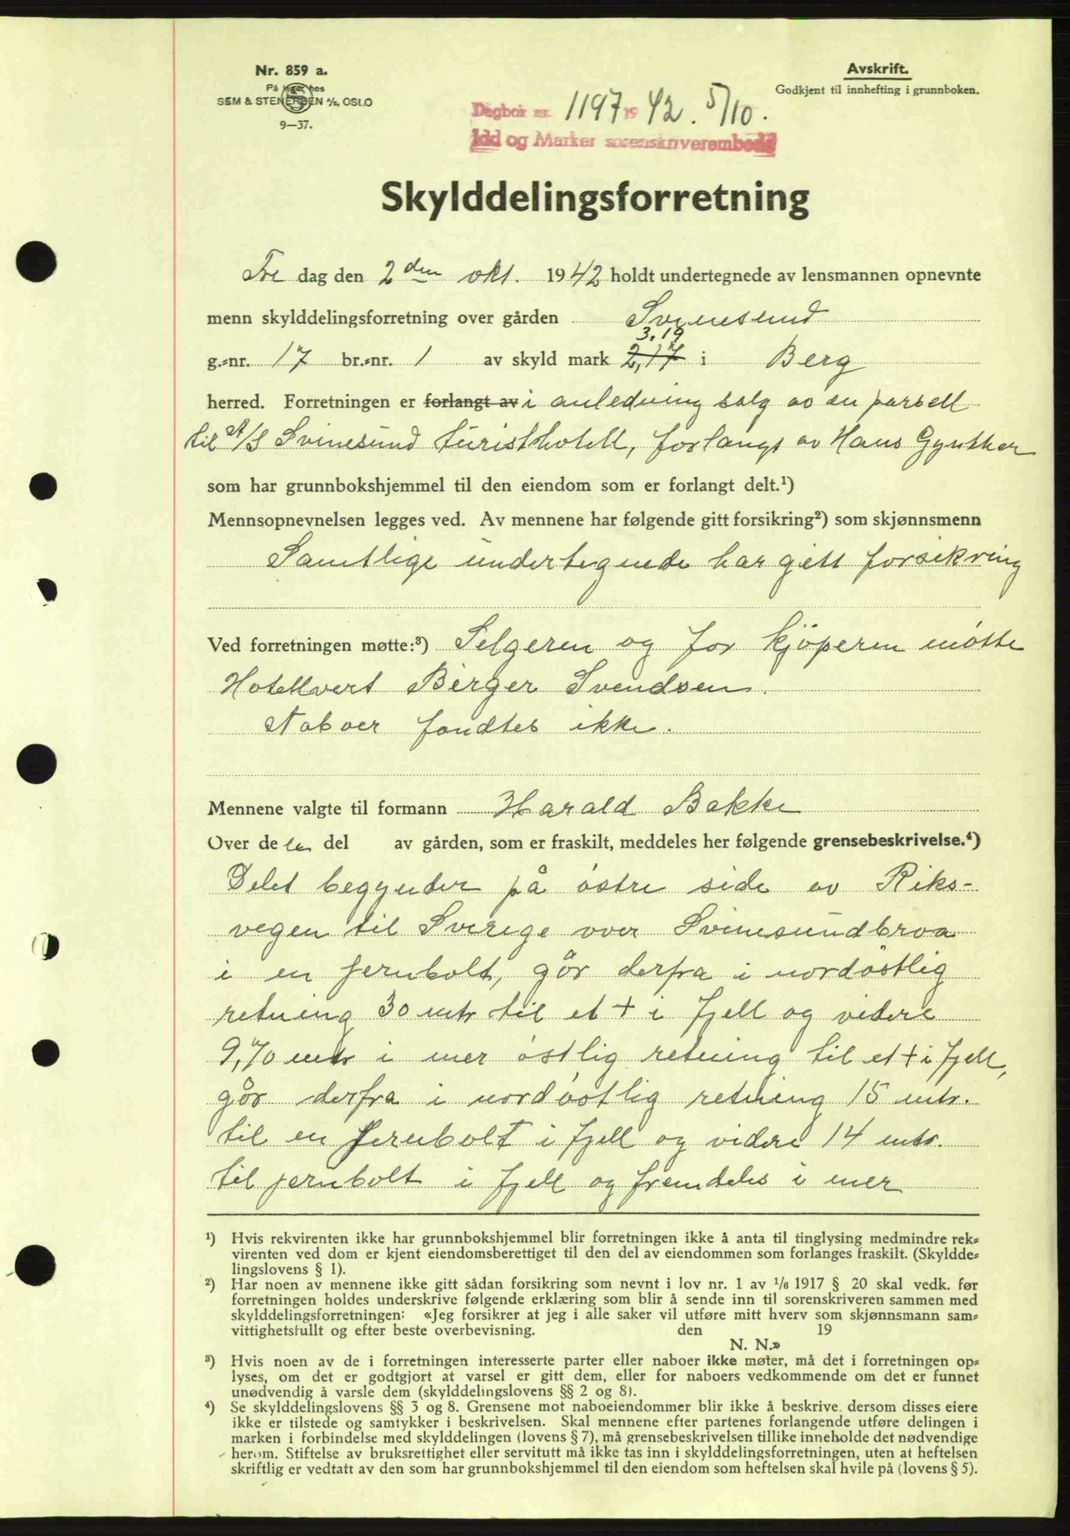 Nr. 859 a.
På lager hos
SEM & STENERSEN A/S, OSLO
9—37.
Avskrift.
Godkjent til innhefting i grunnboken.
Dagbok nr. 1197 19 42. 5/10.
Idd og Marker sorenskriverembede
Skylddelingsforretning
Fre dag den 2den okt. 1942 holdt undertegnede av lensmannen opnevnte
menn skylddelingsforretning over gården Svinesund
3.19
g.-nr. 17 br.-nr. 1 av skyld mark 2,17 i Berg
herred. Forretningen er forlangt av i anledning salg av en parsell
til A/S Svinesund turisthotell, forlangt av Hans Gynther
som har grunnbokshjemmel til den eiendom som er forlangt delt.¹)
Mennsopnevnelsen legges ved. Av mennene har følgende gitt forsikring²) som skjønnsmenn
Samtlige undertegnede har gitt forsikring
Ved forretningen møtte:³) Selgeren og for kjöperen mötte
Hotellvert Birger Svendsen.
Naboer fandtes ikke.
Mennene valgte til formann Harald Bakke
Over de len del av gården, som er fraskilt, meddeles her følgende grensebeskrivelse.⁴)
Delet begynder på östre side av Riks-
vegen til Sverige over Svinesundbroa
i en jernbolt, går derfra i nordöstlig
retning 30 mtr til et + i fjell og videre
9,70 mtr i mer östlig retning til et + i fjell,
går derfra i nordöstlig retning 15 mtr.
til en Jernbolt i fjell og videre 14 mtr.
til jernbolt i fjell og fremdeles i mer
¹) Hvis rekvirenten ikke har grunnbokshjemmel blir forretningen ikke å anta til tinglysing medmindre rek-
virenten ved dom er kjent eiendomsberettiget til den del av eiendommen som forlanges fraskilt. (Skyldde-
lingslovens § 1).
²) Har noen av mennene ikke gitt sådan forsikring som nevnt i lov nr. 1 av 1/6 1917 § 20 skal vedk. før
forretningen holdes underskrive følgende erklæring som blir å sende inn til sorenskriveren sammen med
skylddelingsforretningen: «Jeg forsikrer at jeg i alle saker vil utføre mitt hverv som skjønnsmann sam-
vittighetsfullt og efter beste overbevisning. den 19
N. N.»
³) Hvis noen av de i forretningen interesserte parter eller naboer ikke møter, må det i forretningen op-
lyses, om det er godtgjort at varsel er gitt dem, eller for naboers vedkommende om det er funnet
unødvendig å varsle dem (skylddelingslovens §§ 2 og 8).
⁴) Se skylddelingslovens §§ 3 og 8. Grensene mot naboeiendommer blir ikke å beskrive dersom disses eiere
ikke er tilstede og samtykker i beskrivelsen. Skal mennene efter partenes forlangende utføre delingen i
marken i forbindelse med skylddelingen (lovens § 7), må grensebeskrivelsen tillike inneholde det nødvendige
herom. Stiftelse av bruksrettighet eller servitutt må ikke tas inn i skylddelingsforretningen, uten at heftelsen
skriftlig er vedtatt av den som har grunnbokshjemmel til den eiendom som heftelsen skal hvile på (lovens § 5).